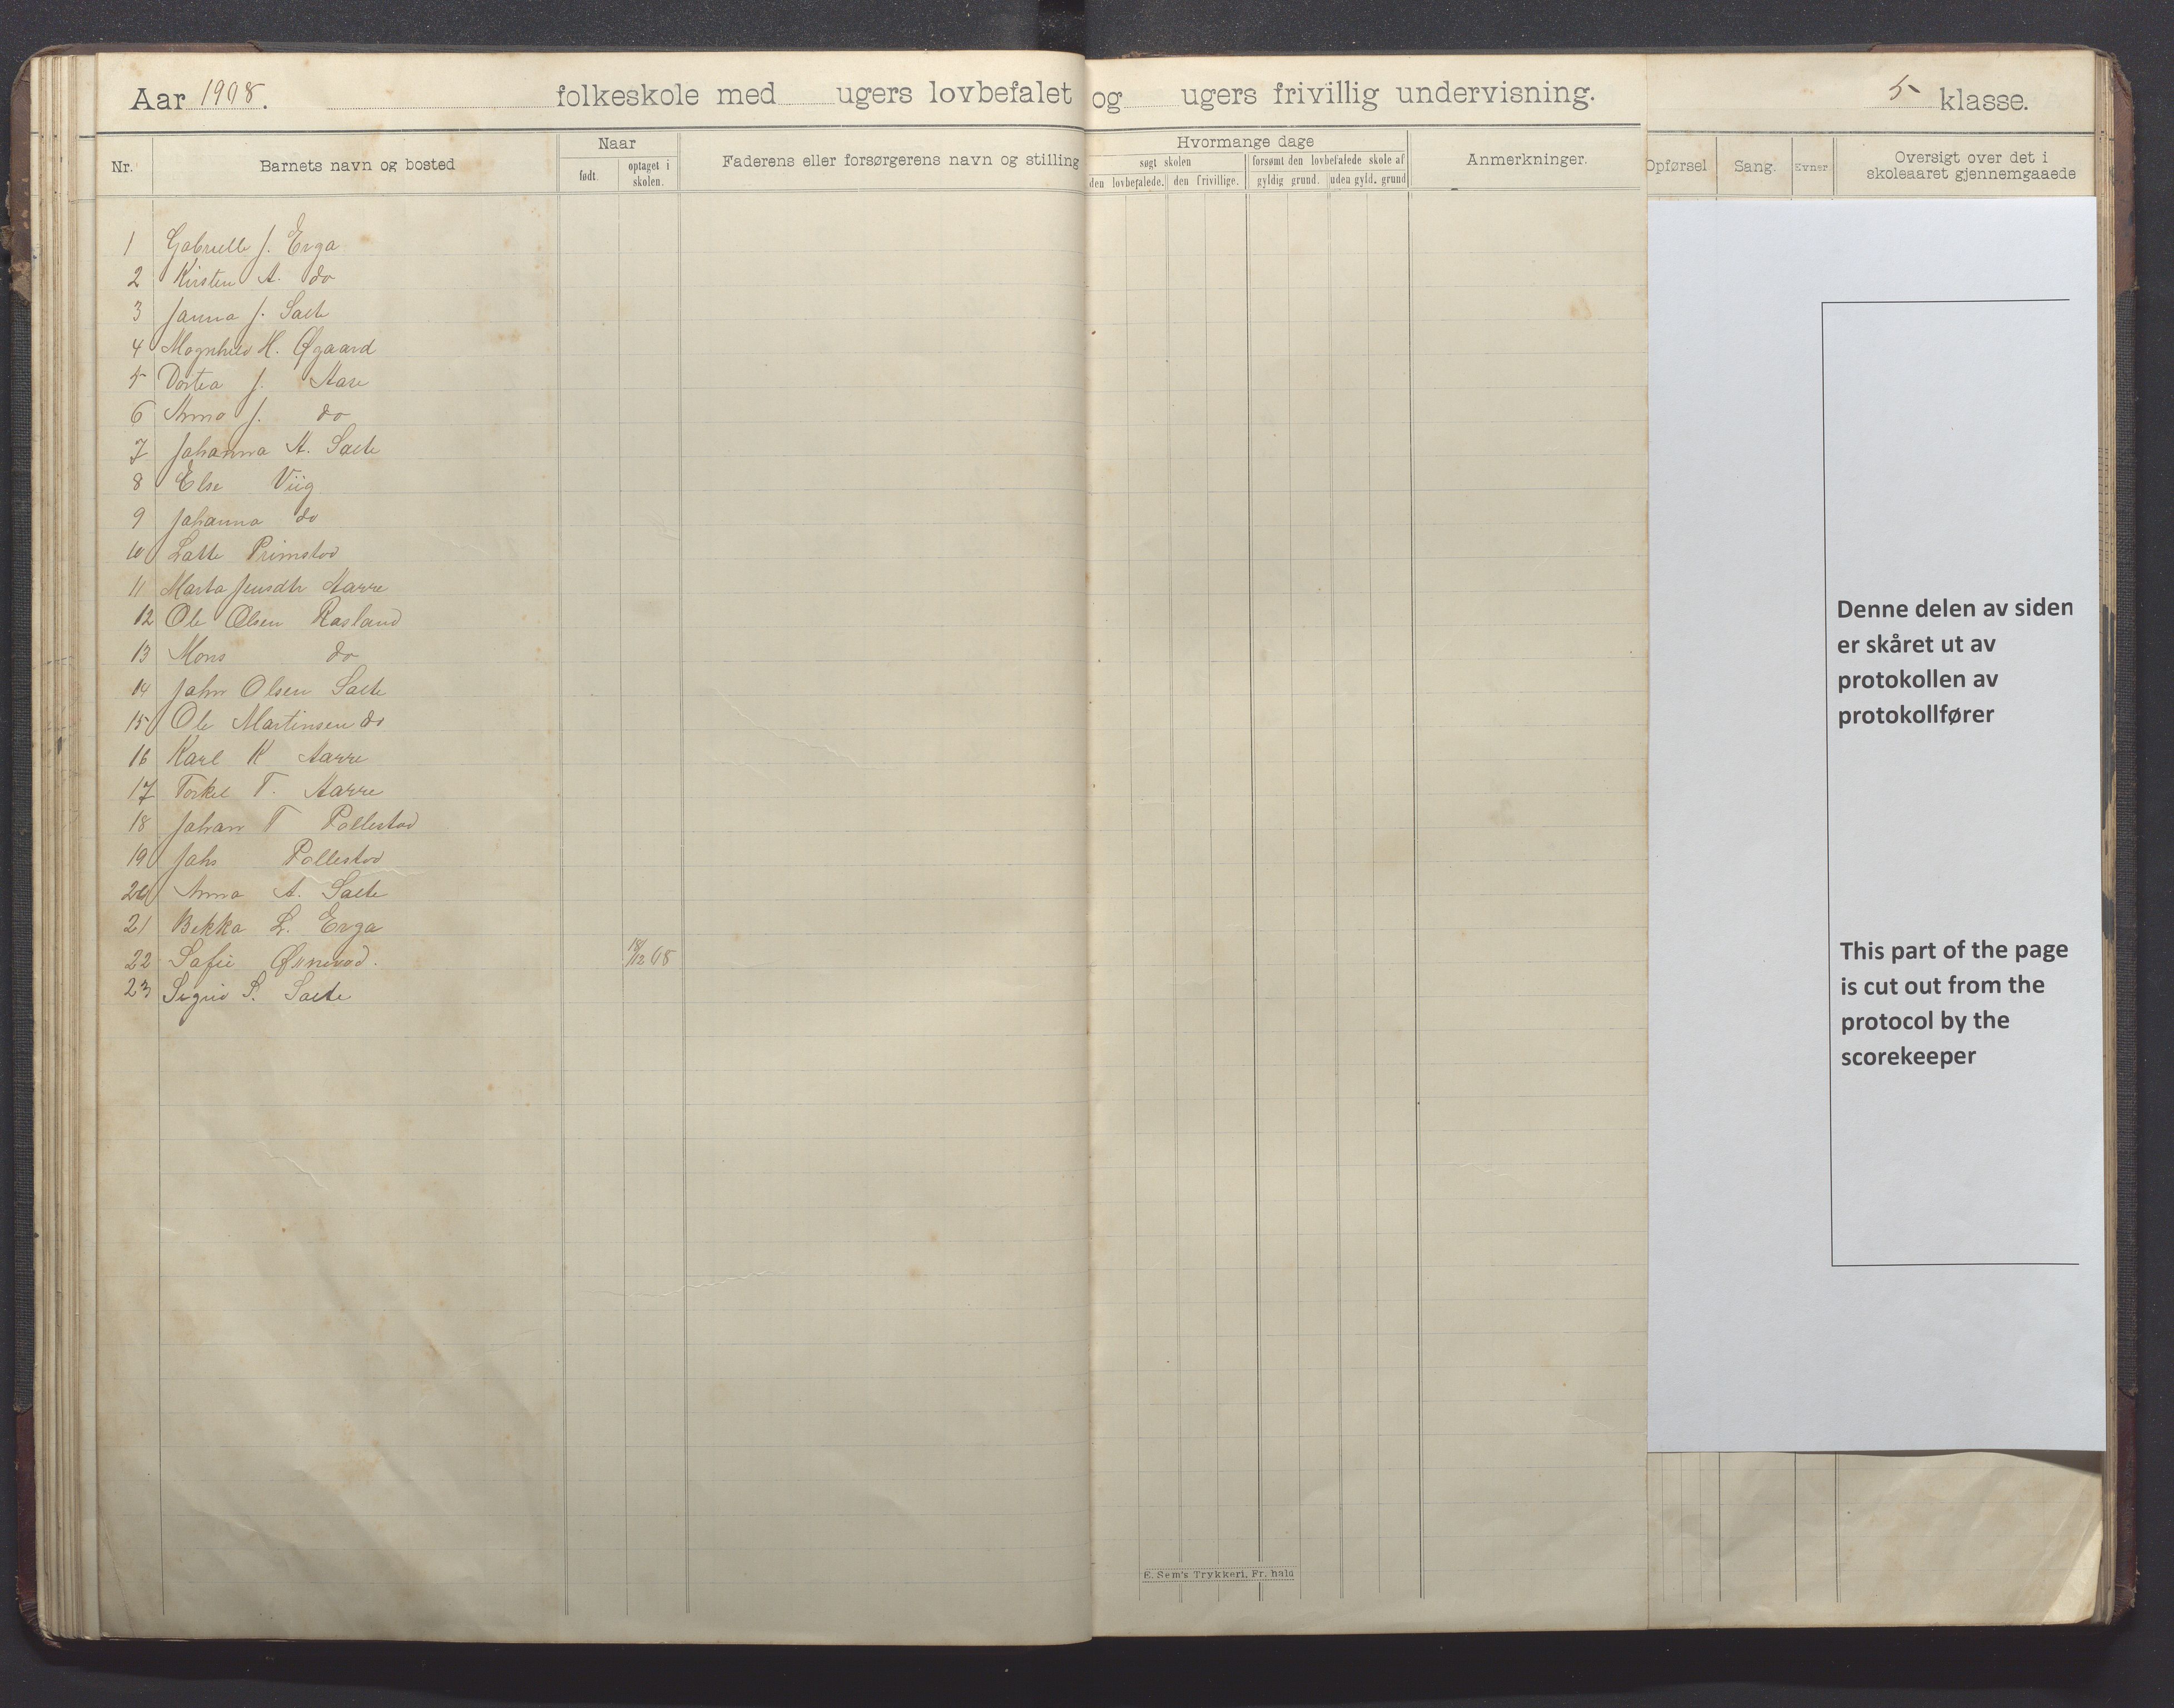 Aar 1908. folkeskole med ugers lovbefalet og ugers frivillig undervisning. 5 klasse.
Nr. Barnets navn og bosted Naar født. optaget i skolen. Faderens eller forsørgerens navn og stilling Hvormange dage søgt skolen den lovbefalede. den frivillige. forsømt den lovbefalede skole af gyldig grund. uden gyld. grund Anmerkninger. Opførsel Sang. Evner Oversigt over det i skoleaaret gjennemgaaede
1 Gabrielle J. Erga
2 Kirsten A. do
3 Janna J. Salte
4 Magnhild H. Øgaard
5 Dortea J. Aase
6 Anna J. do
7 Johanna A. Salte
8 Else Viig
9 Johanna do
10 Lotte Primstad
11 Marta Jensdtr Aarre
12 Ole Olsen Rosland
13 Mons do
14 John Olsen Salte
15 Ole Martinsen do
16 Karl K Aarre
17 Torkel T. Aarre
18 Johan T Pollestad
19 Johs Pollestad
20 Anna A. Salte
21 Bekka L. Erga
22 Sofie 18/12 08
23 Sigrid S. Salte
Denne delen av siden
er skåret ut av
protokollen av
protokollfører
This part of the page
is cut out from the
protocol by the
scorekeeper
E. Sem's Trykkeri, Fr. hald